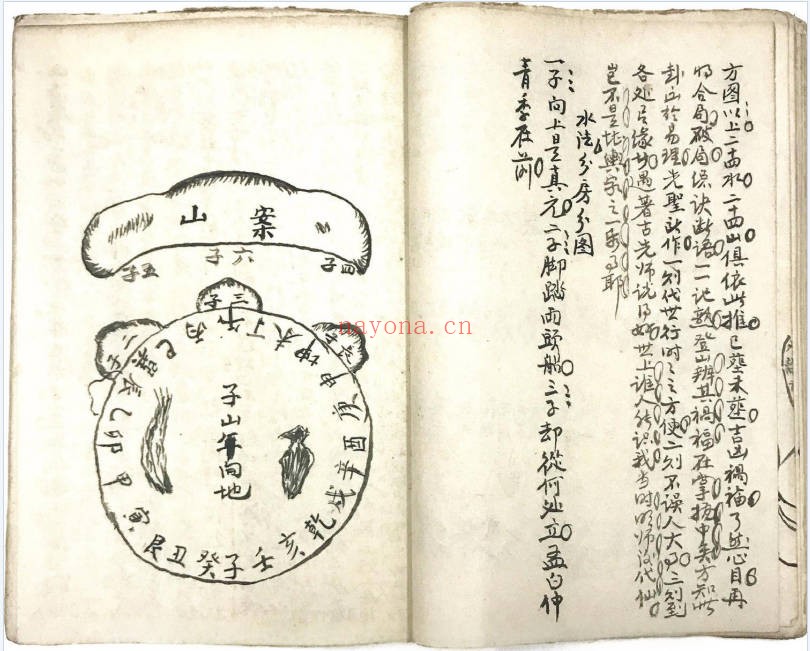 方图以上二十四水二十四山俱依此推已塟未塟吉凶禍福了然心目再
将合局破局总诀断语一一记熟登山辨其禍福在掌握中矣方知此
卦出於易理先聖所作一则代世行时之方便二则不误人大事三则到
各处有缘好遇著古先师说得好世上誰人能识我当时明师汉代仙
豈不是堪輿家之一乐事耶
水法分房分图
一子向上是真元二子脚踏两頭船三子却從何处立孟白仲
青季在前
案山
四子 六子 五子
三子
子山午向地
巳 丙 午 丁 未 坤 申 庚 酉 辛 戌 乾 亥 壬 子 癸 丑 艮 寅 甲 卯 乙 辰
nayona.cn